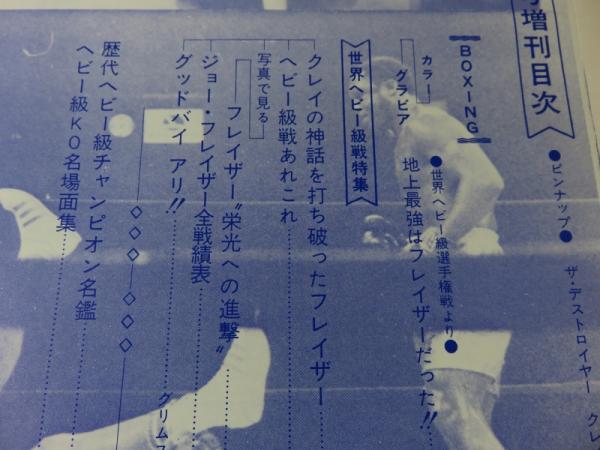 増刊目次
●ピンナップ●
ザ・デストロイヤー
BOXING
カラーグラビア
●世界ヘビー級選手権戦より●
地上最強はフレイザーだった!!
世界ヘビー級戦特集
クレイの神話を打ち破ったフレイザー
ヘビー級戦あれこれ
写真で見る
フレイザー“栄光への進撃”
ジョー・フレイザー全戦績表
グッドバイ アリ!!
グリムス
◇◇◇ ◇◇◇
歴代ヘビー級チャンピオン名鑑
ヘビー級KO名場面集